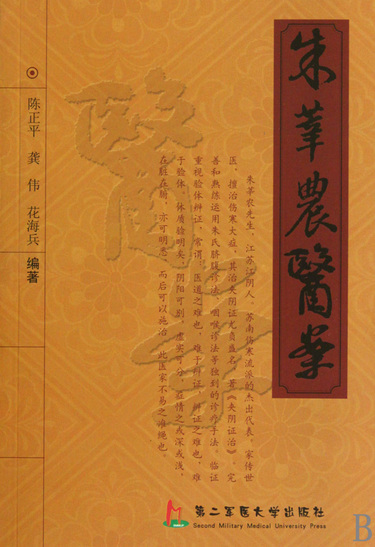 朱莘農醫案
陈正平 龚伟 花海兵 编著
醫
朱莘农先生，江苏江阴人，苏南伤寒流派的杰出代表，家传世
医，擅治伤寒大症，其治夹阴证尤负盛名，著《夹阴证治》，完
善和熟练运用朱氏脐腹诊法、咽喉诊法等独到的诊疗手法。临证
重视验体辨证，常谓：医道之难也，难于辨证，辨证之难也，难
于验体，体质验明矣，阴阳可别，虚实可分，症情之或深或浅，
在脏在腑，亦可明悉，而后可以施治，此医家不易之准绳也。
第二军医大学出版社
Second Military Medical University Press
B